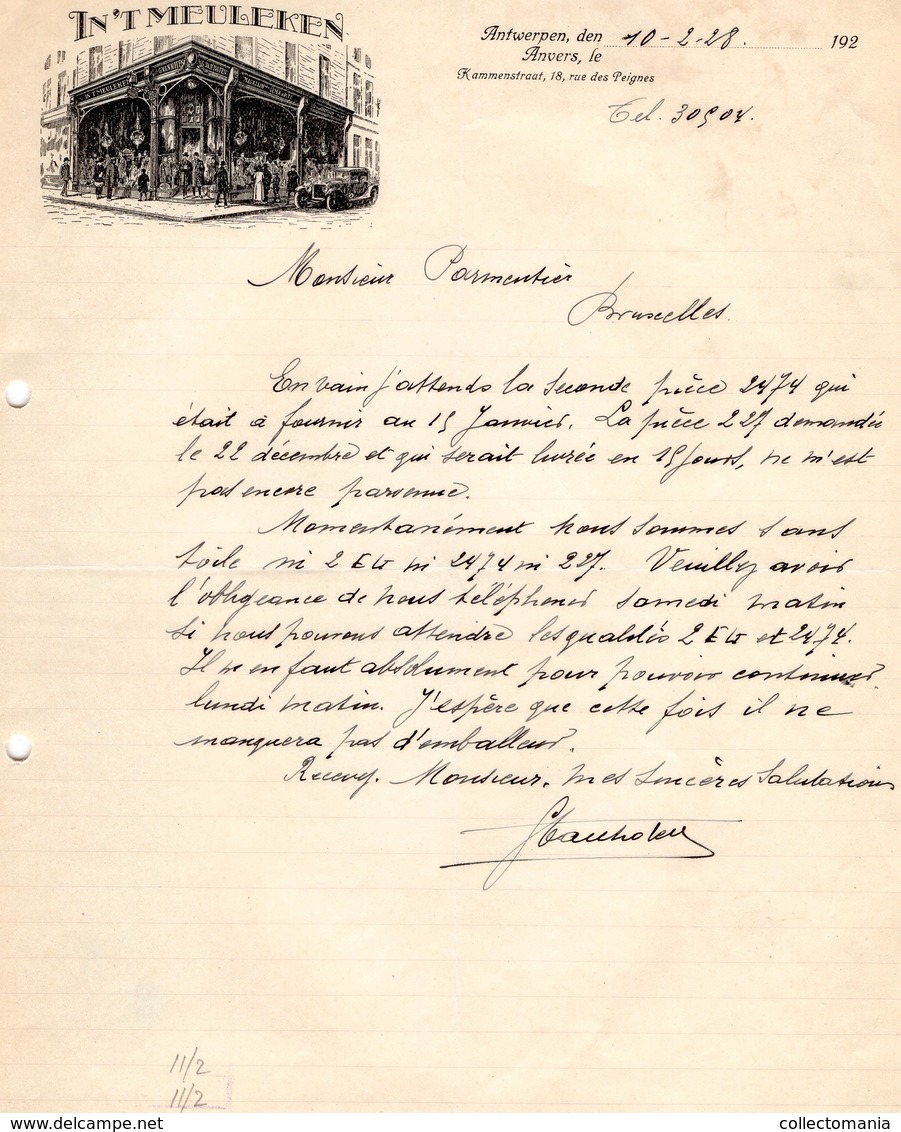 IN 'T MEULEKEN
Antwerpen, den 10-2-28. 192
Anvers, le
Kammenstraat, 18, rue des Peignes
Tel. 30904.
IN 'T MEULEKEN
Monsieur Parmentier
Bruxelles.
En vain j'attends la seconde pièce 2474 qui
était à fournir au 15 Janvier. La pièce 227 demandée
le 22 décembre et qui serait livrée en 15 jours, ne m'est
pas encore parvenue.
Momentanément nous sommes sans
toile ni 2 ni 2474 ni 227. Veuillez avoir
l'obligeance de nous téléphoner samedi matin
si nous pouvons attendre les qualités 2 et 2474.
Il m'en faut absolument pour pouvoir continuer
lundi matin. J'espère que cette fois il ne
manquera pas d'emballeur.
Recevez, Monsieur, mes sincères salutations
11/2
11/2
www.delcampe.net
collectomania